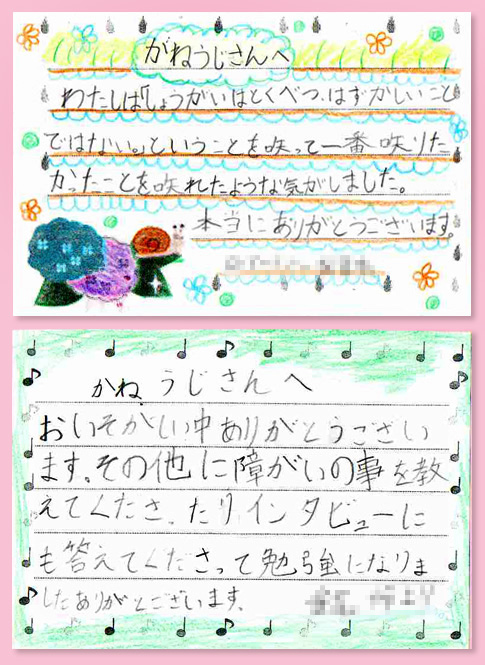 がねうじさんへ
わたしは「しょうがいはとくべつ、はずかしいこと
ではない。」ということを咲って一番咲りた
かったことを咲れたような気がしました。
本当にありがとうございます。
かねうじさんへ
おいそがしい中ありがとうござい
ます。その他に障がいの事を教
えてくださったりインタビューに
も答えてくださって勉強になりま
したありがとございます。